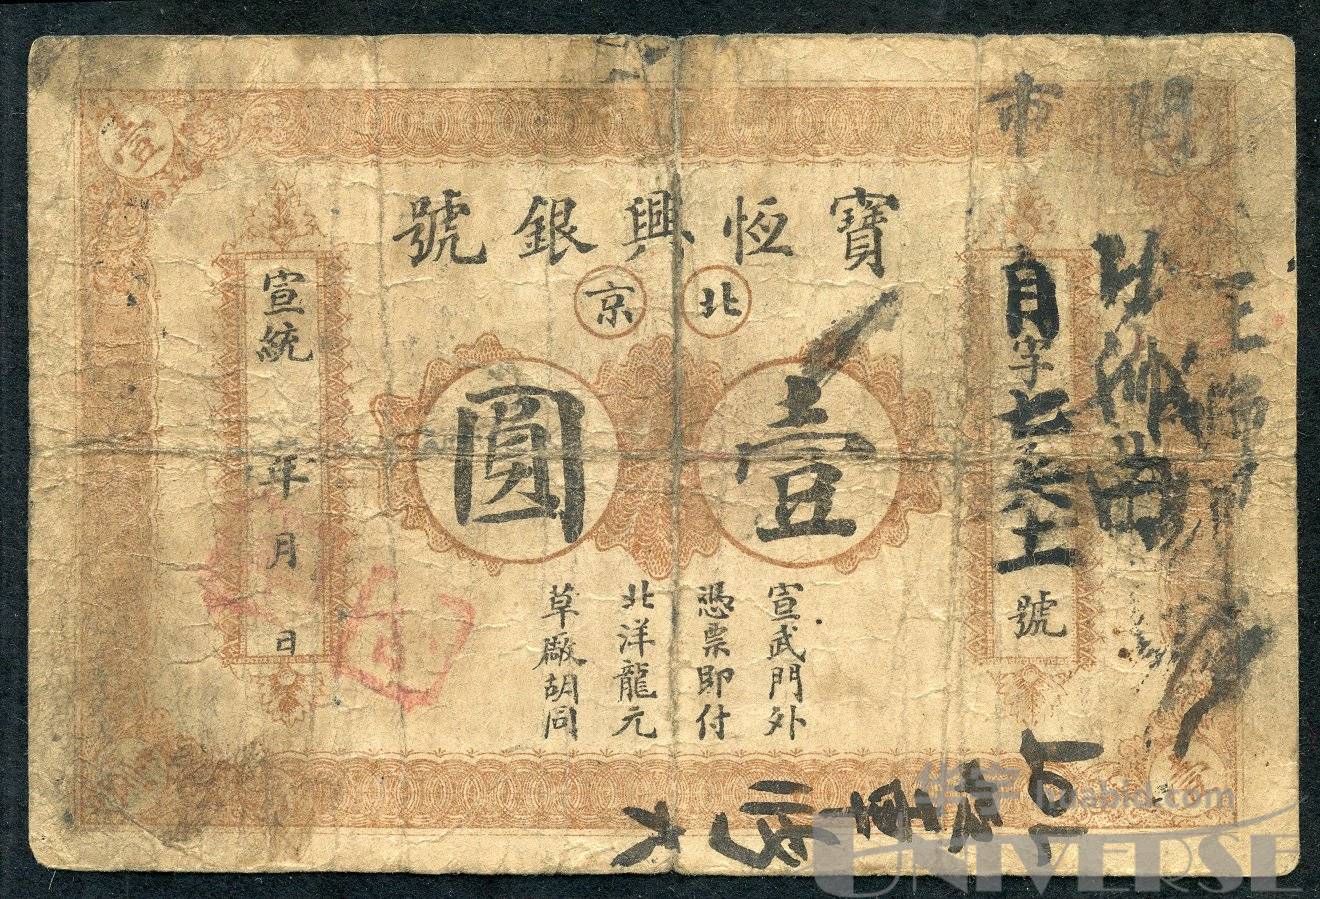 寶恆興銀號
北京
壹圓
宣武門外
憑票即付
北洋龍元
草廠胡同
字
號
宣統
年
月
日
壹
市
华宇 huabid.com
UNIVERSE